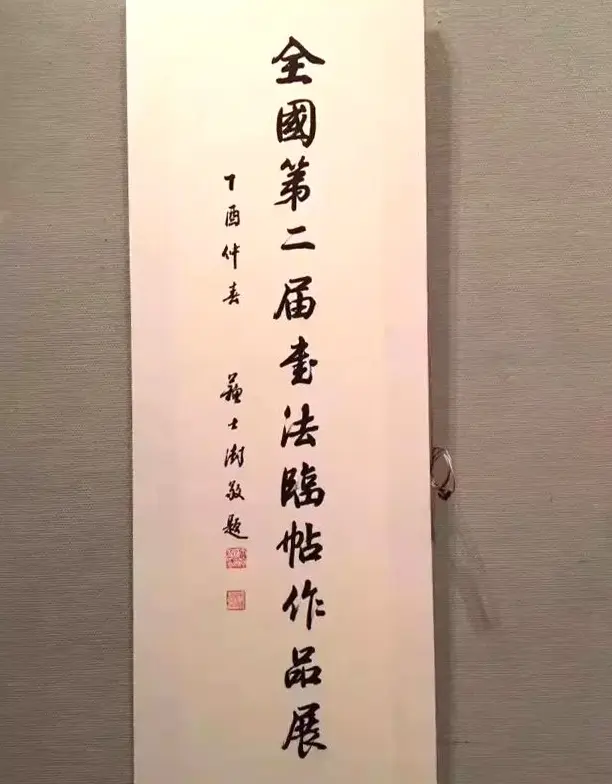 全國第二届書法臨帖作品展
丁酉仲春 蘇士澍敬題